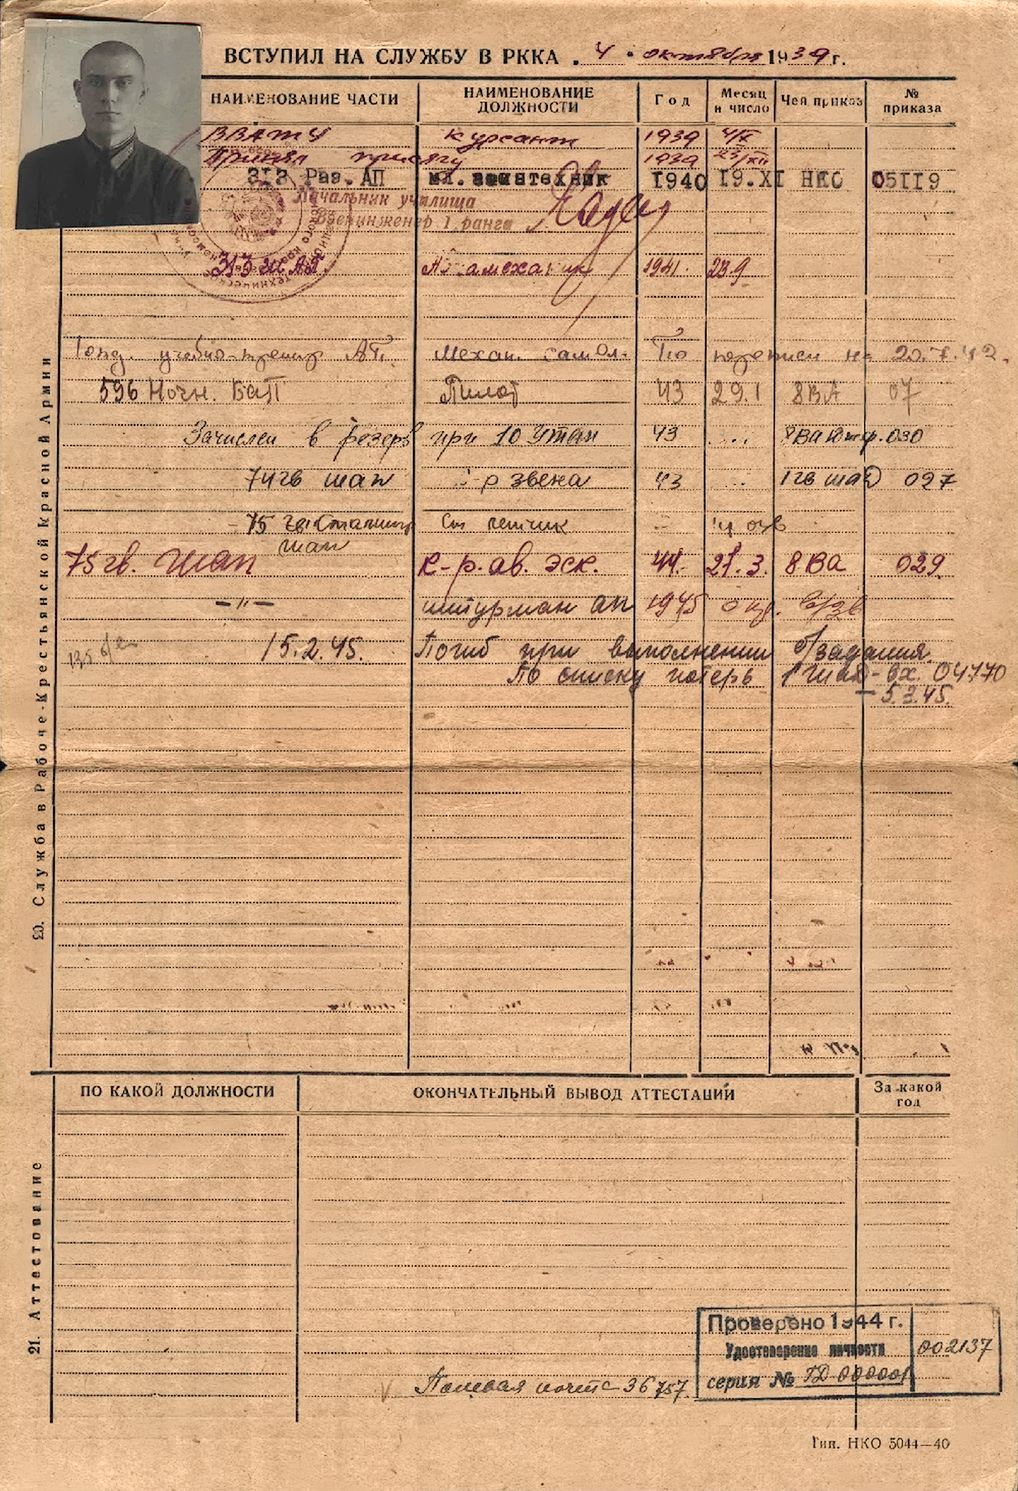 ВСТУПИЛ НА СЛУЖБУ В РККА „4" октября 1939 г.
НАИМЕНОВАНИЕ ЧАСТИ НАИМЕНОВАНИЕ ДОЛЖНОСТИ Год Месяц и число Чей приказ № приказа
ВВАТУ курсант 1939 4/X
Принял присягу 1939 23/XII
312 Раз. АП мл. воентехник 1940 19.XI НКО 05119
Начальник училища
Военинженер 1 ранга
313 АП Авиамеханик 1941. 23.9
учебно-тренир АП. Механ. самол. По переписи на 20.7.42.
596 Ночн. БАП Пилот 43 29.1 8ВА 07
Зачислен в резерв при 10 УТАП 43 ... 8ВА 030
74 гв шап к-р звена 43 ... 1 гв шад 097
75 гв Сталингр Ст летчик
шап
75 гв. шап к-р. ав. эск. 44. 21.3. 8ВА 029
—"— штурман ап 1945
15.2.45. Погиб при выполнении б/задания.
По списку потерь 1 гшад - вх. 04770
- 5.3.45.
20. Служба в Рабоче-Крестьянской Красной Армии
ПО КАКОЙ ДОЛЖНОСТИ ОКОНЧАТЕЛЬНЫЙ ВЫВОД АТТЕСТАЦИИ За какой год
21. Аттестование
Проверено 1944 г.
Удостоверение личности 002137
серия № ГД-00000
Полевая почта 36757.
Тип. НКО 5044—40